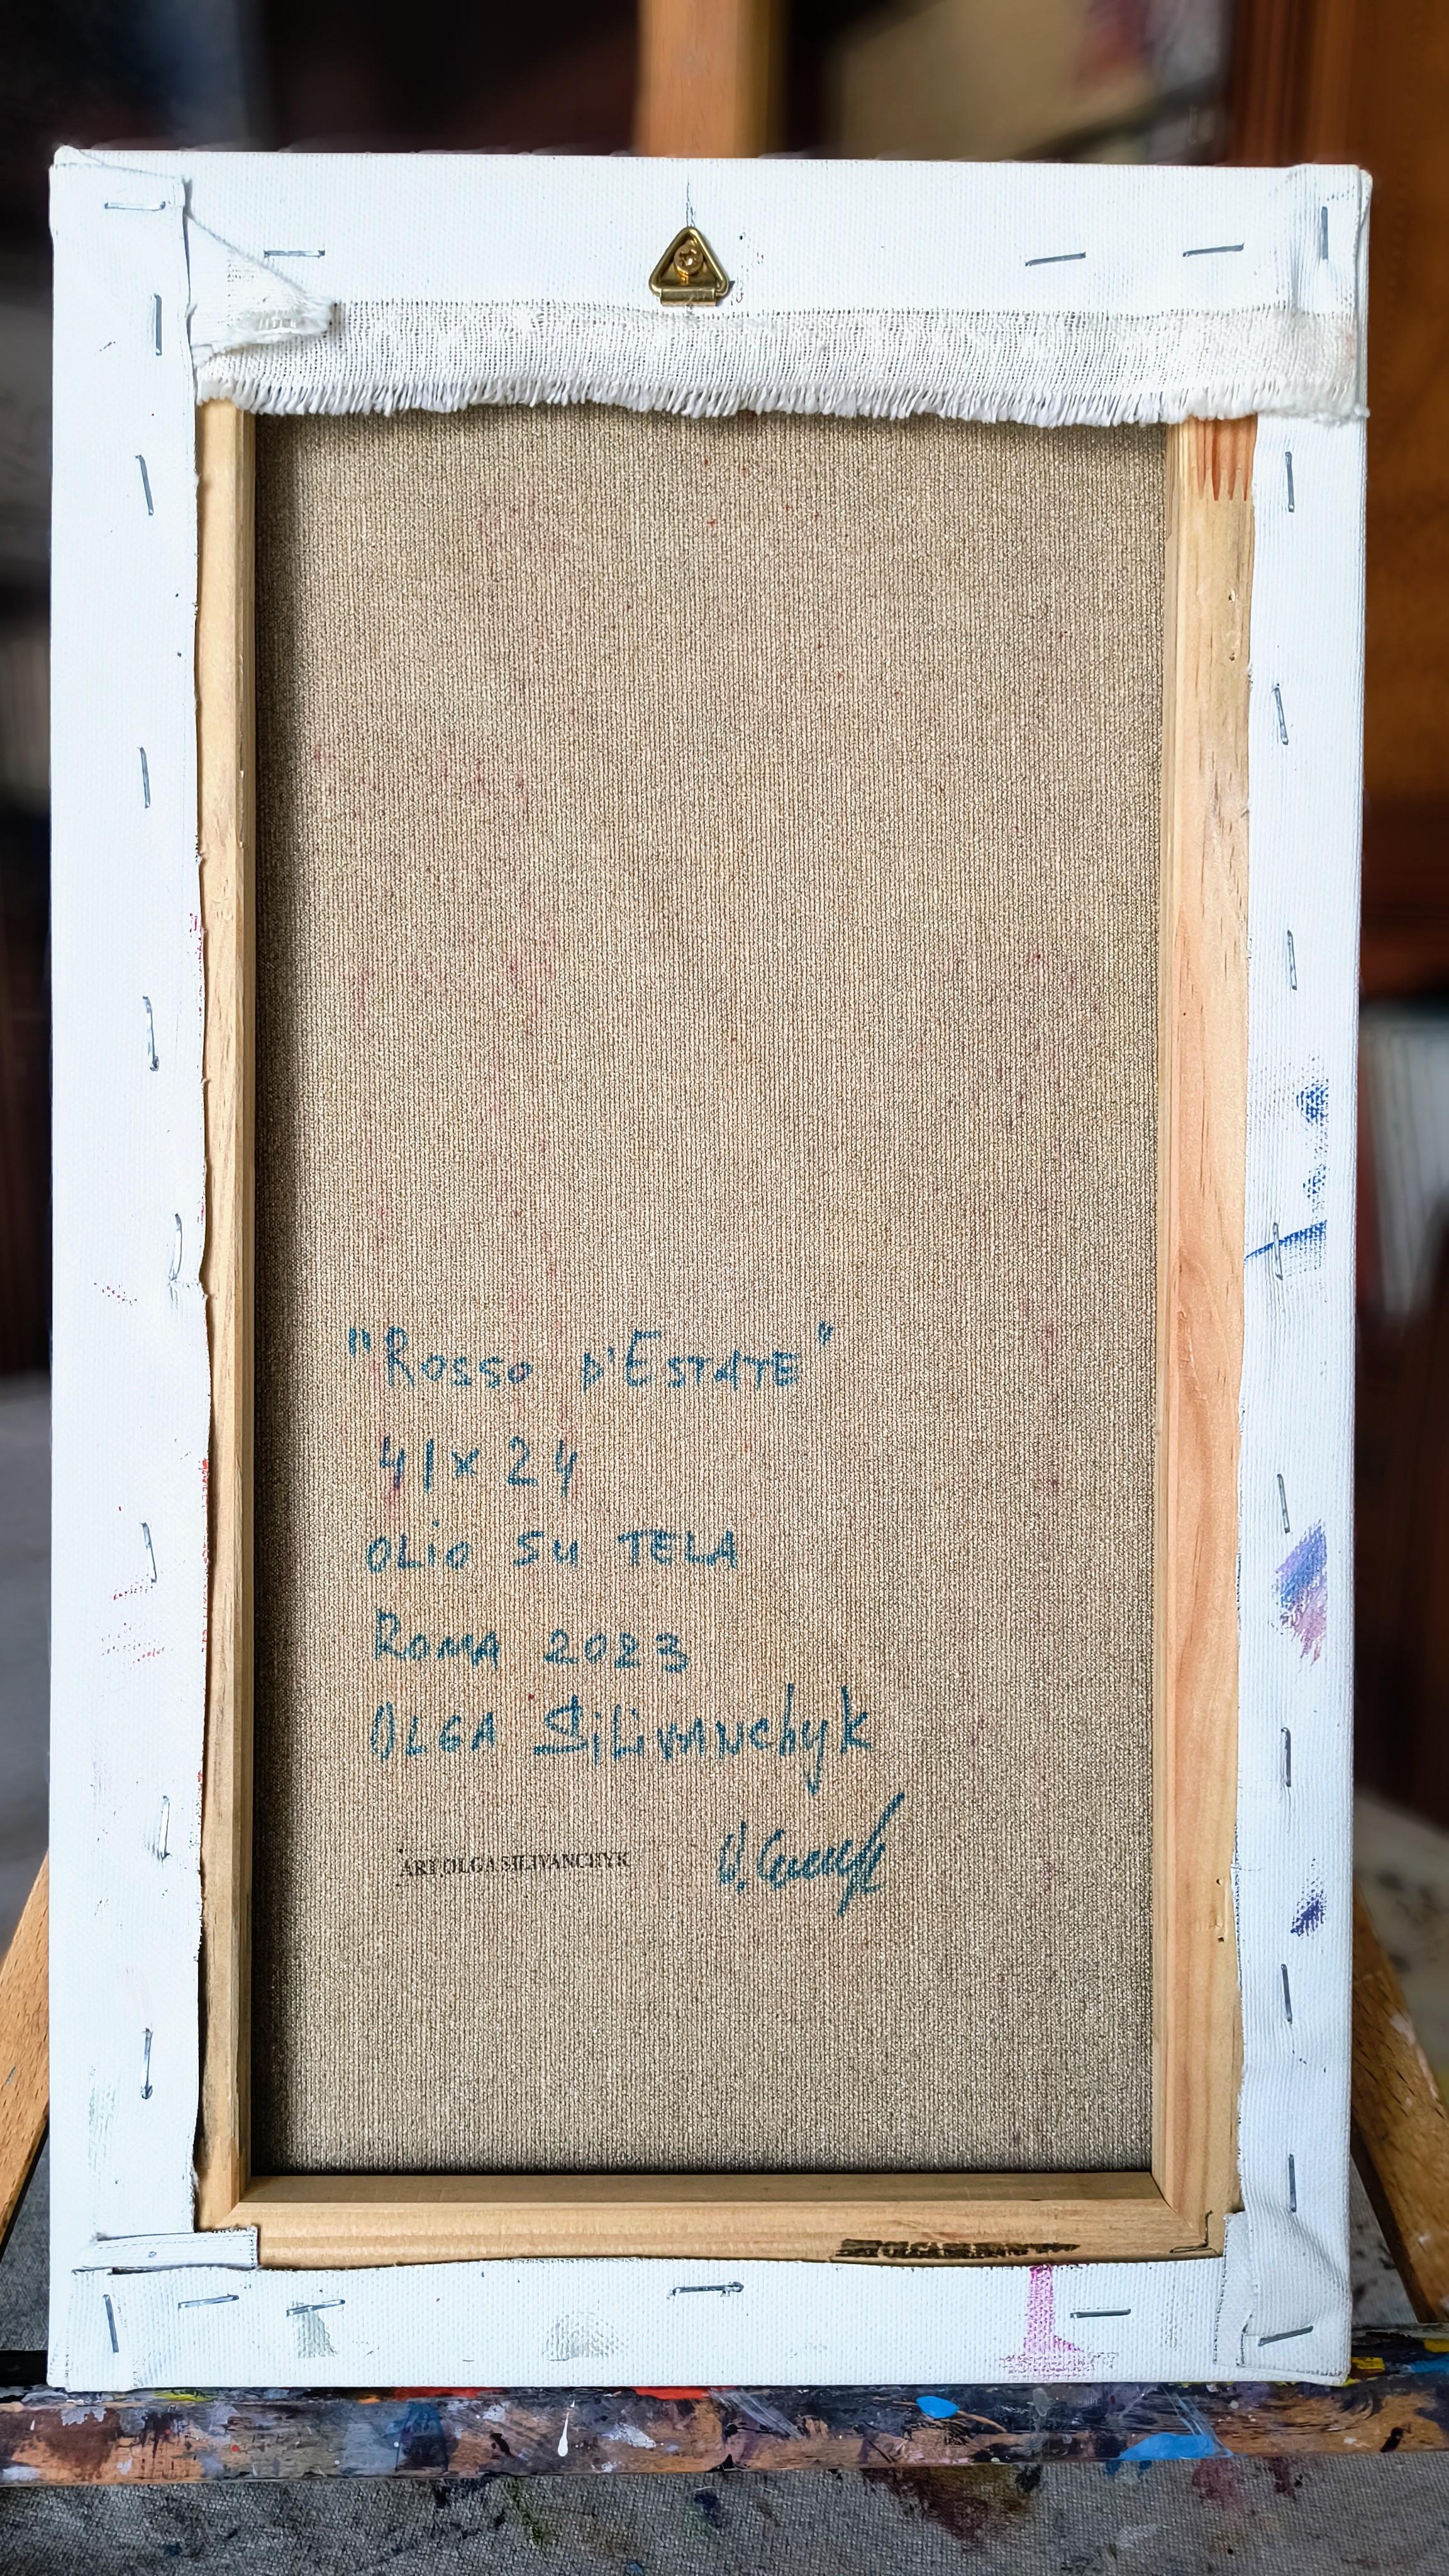 "Rosso d'Estate"
41x24
OLiO SU TELA
ROMA 2023
OLGA SiLiVANchyk
ART OLGA SILIVANCHYK